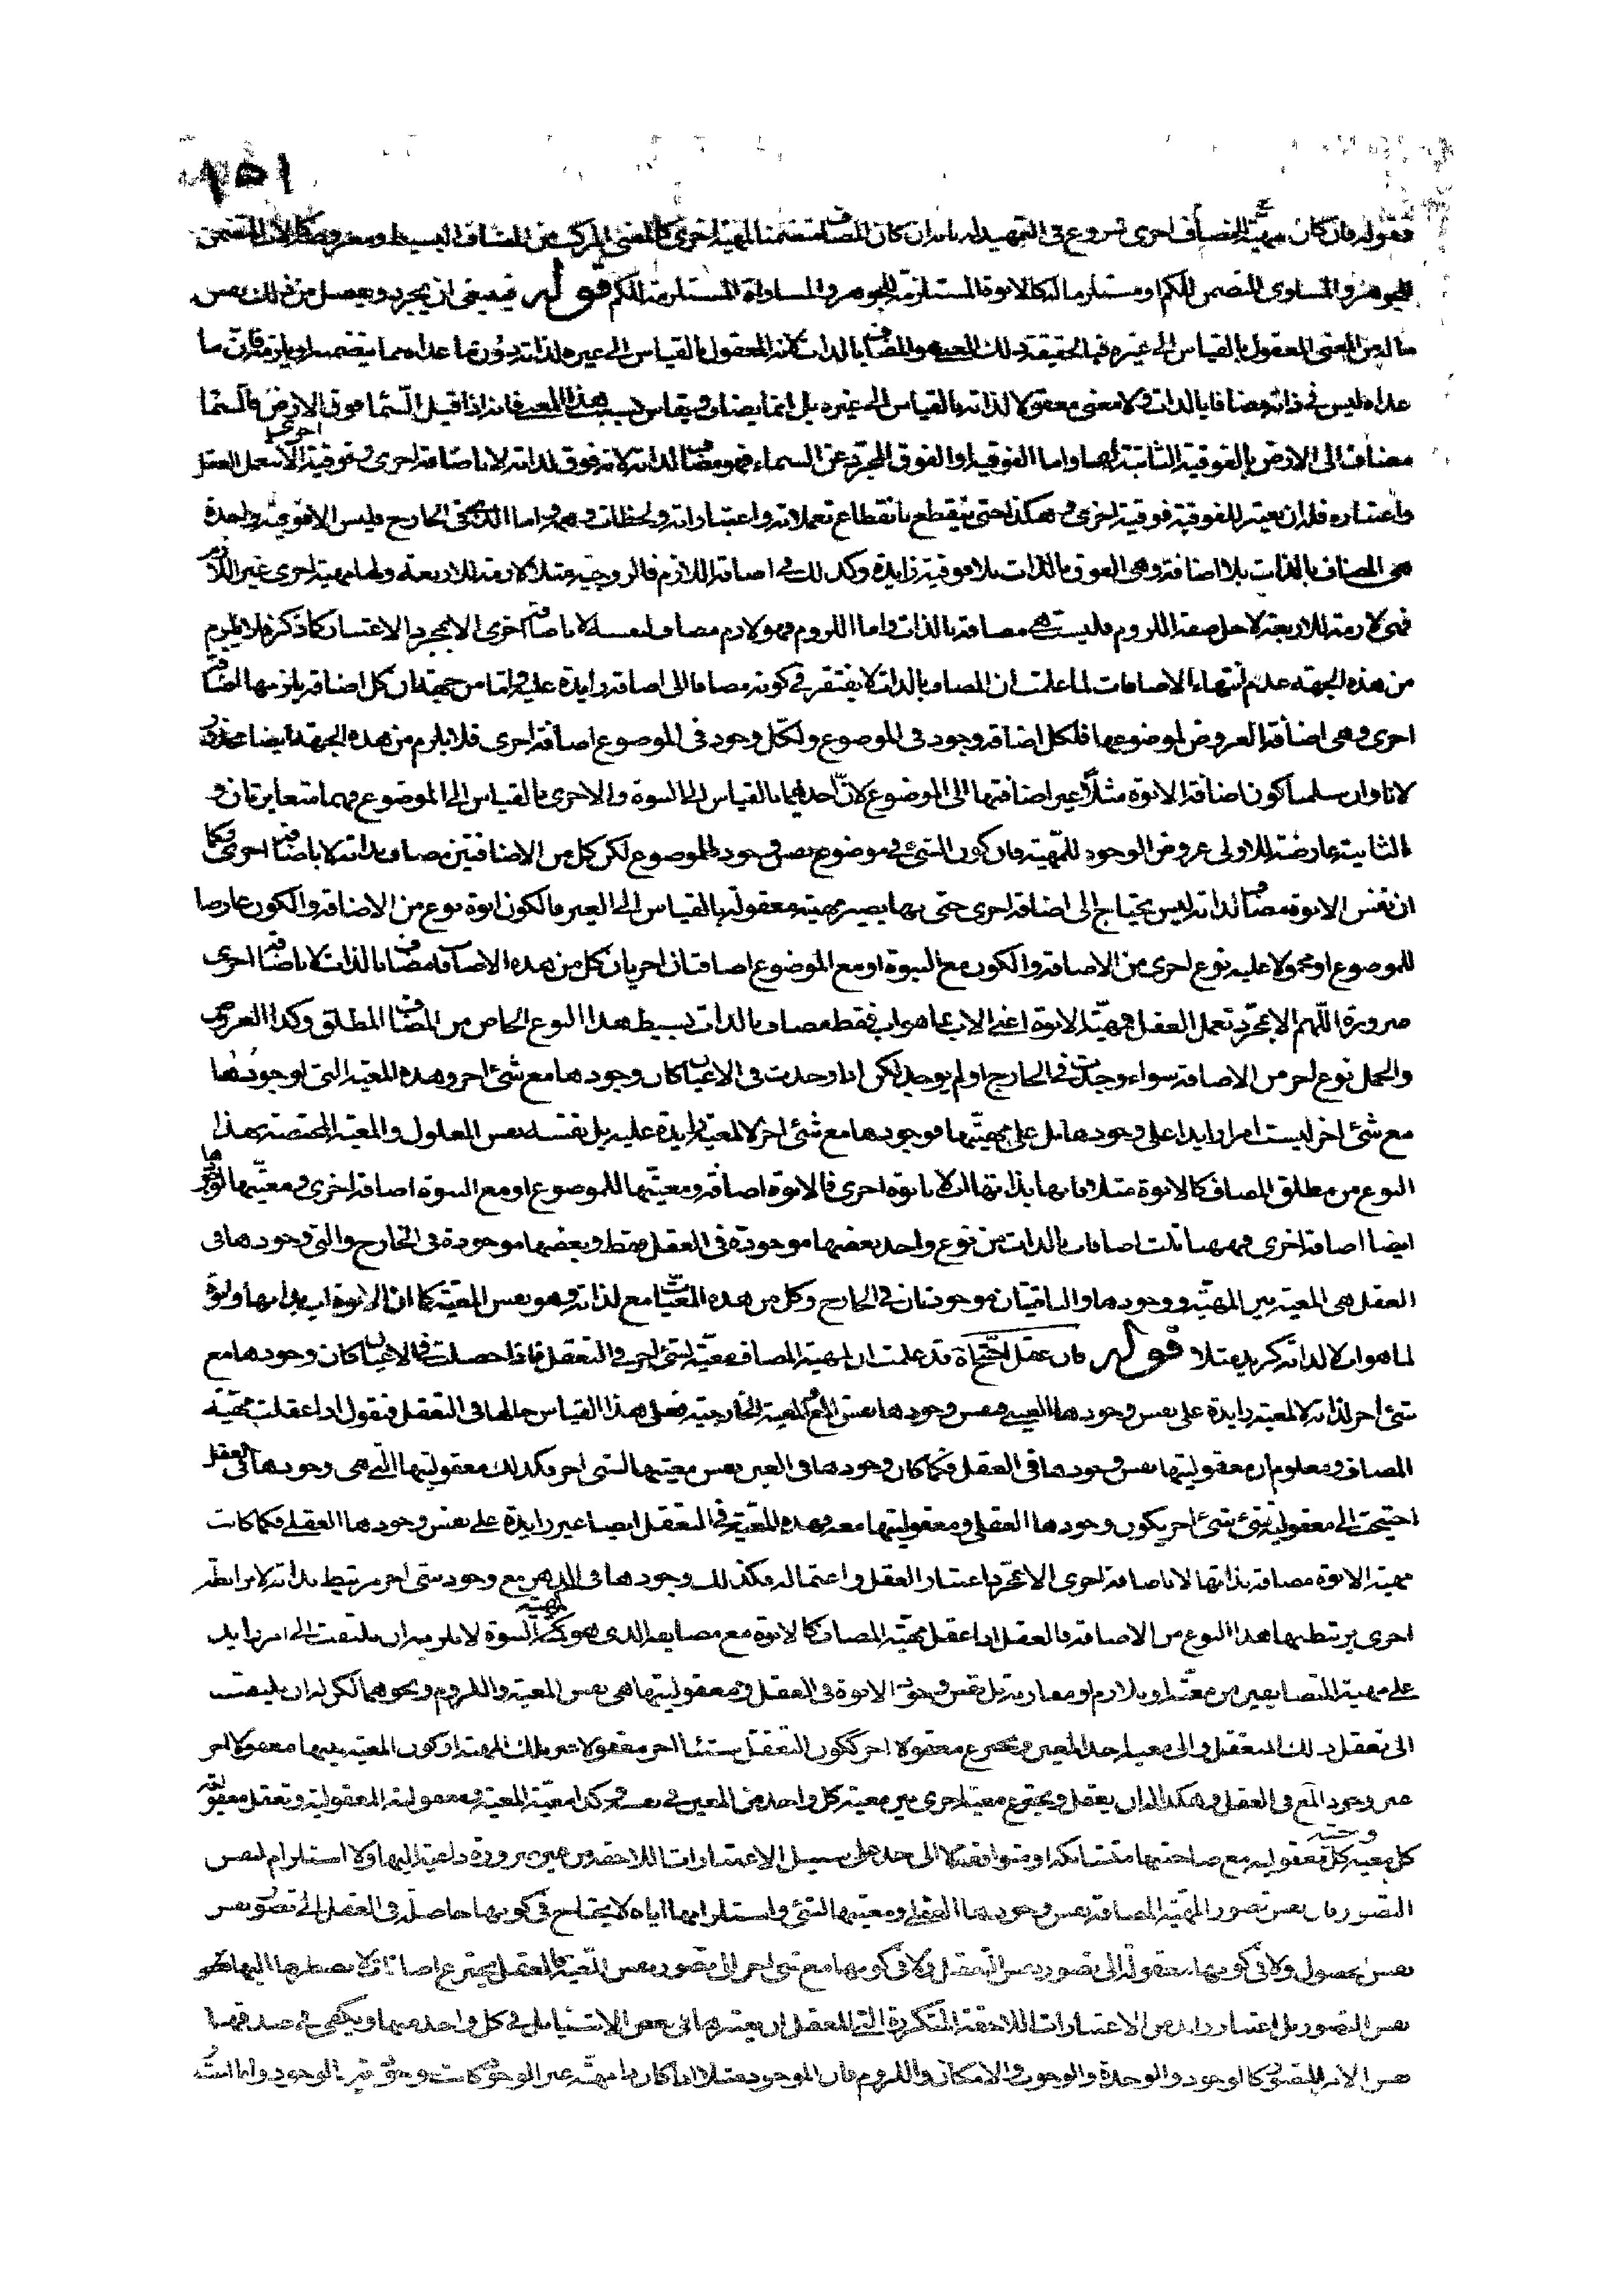 ١٥١
فقوله فان كان مهية المضاف اخرى شروع فى التمهيد له بانه ان كان المضاف متضمنا لمهية اخرى كالمعنى المركب من المضاف البسيط ومعروضه كالاب المتضمن
للجوهر والمساوى المتضمن للكم او مستلزما لها كالابوة المستلزمة للجوهر والمساواة المستلزمة للكم قوله فينبغى ان يجرد ويحصل من ذلك نفس
ما له من المعنى المعقول بالقياس الى غيره فبالحقيقة ذلك المعنى هو المضاف بالذات لانه المعقول بالقياس الى غيره لذاته دون ما عداه مما يتضمنه او يلزمه فان ما
عداه ليس فى ذاته مضافا بالذات ولا معنى معقولا لذاته بالقياس الى غيره بل انما يضاف ويقاس بسبب هذا المعنى فانه اذا قيل السماء فوق الارض فالسماء
مضاف الى الارض بالفوقية الثابتة لها واما الفوقية او الفوق المجرد عن السماء فهو مضاف لذاته لانه فوق لذاته لا باضافة اخرى وفوقية اخرى الا بتعمل العقل
واعتباره فله ان يعتبر للفوقية فوقية اخرى وهكذا حتى ينقطع بانقطاع تعملاته واعتباراته ولحظاته واما الذى فى الخارج فليس الا فوقية واحدة
هى المضاف بالذات بلا اضافة وهى الفوق بالذات بلا فوقية زايدة وكذلك فى اضافة اللازم فالزوجية مثلا لازمة للاربعة ولها مهية اخرى غير اللازم
فهى لازمة للاربعة لاجل صفة اللزوم فليست هى مضافة بالذات واما اللزوم فهو لازم مضاف لنفسه لا باضافة اخرى الا بمجرد الاعتبار كما ذكر فلا يلزم
من هذه الجهة عدم انتهاء الاضافات لما علمت ان المضاف بالذات لا يفتقر فى كونه مضافا الى اضافة زايدة عليه واما من جهة ان كل اضافة يلزمها اضافة
اخرى وهى اضافة العروض لموضوعها فلكل اضافة وجود فى الموضوع ولكل وجود فى الموضوع اضافة اخرى فلا يلزم من هذه الجهة ايضا محذور
لانا وان سلمنا كون اضافة الابوة مثلا غير اضافتها الى الموضوع لان احدهما بالقياس الى البنوة والاخرى بالقياس الى الموضوع فهما متغايرتان و
الثانية عارضة للاولى عروض الوجود للمهية فان كون الشئ فى موضوع نفس وجود الموضوع لكن كل من الاضافتين مضاف بذاته لا باضافة اخرى فكما
ان نفس الابوة مضاف لذاته ليس يحتاج الى اضافة اخرى حتى بها يصير مهية معقولة بالقياس الى الغير فالكون ابوة نوع من الاضافة والكون عارضا
للموضوع او محمولا عليه نوع اخرى من الاضافة والكون مع البنوة او مع الموضوع اضافتان اخريان كل من هذه الاضافات مضاف بالذات لا باضافة اخرى
ضرورة اللهم الا بمجرد تعمل العقل فمهية الابوة اعنى الاب بما هو اب فقط مضاف بالذات بسيط هذا النوع الخاص من المضاف المطلق وكذا العروض
والحمل نوع اخر من الاضافة سواء وجدت فى الخارج او لم يوجد لكن اذا وجدت فى الاعيان كان وجودها مع شئ اخر وهذه المعية التى لوجودها
مع شئ اخر ليست امرا زايدا على وجودها بل على مهيتها فوجودها مع شئ اخر لا لمعية زايدة عليه بل نفسه نفس المعلول والمعية المختصة بهذا
النوع من مطلق المضاف كالابوة مثلا فانها بذاتها اب لا بابوة اخرى فالابوة اضافة ومعيتها للموضوع او مع البنوة اضافة اخرى ومعيتها لوجودها
ايضا اضافة اخرى فههنا ثلث اضافات بالذات من نوع واحد بعضها موجودة فى العقل فقط وبعضها موجودة فى الخارج والتى وجودها فى
العقل هى المعية بين المهية ووجودها والباقيتان موجودتان فى الخارج وكل من هذه المعيات مع لذاته وهو نفس المعية كما ان الابوة اب بذاتها وابوة
لما هو اب لا لذاته كزيد مثلا قوله فان عقل احتيج اه قد علمت ان لمهية المضاف معية لشئ اخر فى التعقل فاذا حصلت فى الاعيان كان وجودها مع
شئ اخر لذاته لا لمعية زايدة على نفس وجودها العينى فنفس وجودها نفس المع المعية الخارجية فعلى هذا القياس حالها فى التعقل فنقول اذا عقلت مهية
المضاف ومعلوم ان معقوليتها نفس وجودها فى العقل فكما كان وجودها فى العين نفس معيتها لشئ اخر فكذلك معقوليتها التى هى وجودها فى العقل
احتيجت الى معقولية شئ اخر يكون وجودها العقلى ومعقوليتها معه وهذه المعية فى التعقل ايضا غير زايدة على نفس وجودها العقلى فكما كانت
مهية الابوة مضافة بذاتها لا باضافة اخرى الا بمجرد اعتبار العقل واعتماله فكذلك وجودها فى الذهن مع وجود شئ اخر مرتبط بذاته لا برابطة
اخرى يرتبط بها هذا النوع من الاضافة فالعقل اذا عقل مهية المضاف كالابوة مع مضايفه الذى هو كمهية البنوة لا يلزمه ان يلتفت الى امر زايد
على مهية المتضايفين من معية او تلازم او مقارنة بل نفس وجود الابوة فى العقل ومعقوليتها هى نفس المعية واللزوم ونحوهما لكن له ان يلتفت
الى تعقل ذلك التعقل والى معية احد المعين ويخترع معقولا اخر ككون التعقل شيئا اخر معقولا غير تلك المهية او كون المعية بينها معقولا اخر
غير وجود المع فى العقل وهكذا له ان يعقل ويخترع معية اخرى بين معية كل واحد من المعين فى نفسه وكذا معية المعية ومعقولية المعقولية وتعقل معقولية
كل معية كل معقولية مع صاحبتها متشابكة او متوافقة لا الى حد على سبيل الاعتبارات اللاحقة من غير ضرورة داعية اليها ولا استلزام لنفس
التصور فان نفس تصور المهية المضافة نفس وجودها العقلى ومعيتها لشئ واستلزامها اياه لا يحتاج فى كونها حاصلة فى العقل الى تصور نفس
نفس الحصول ولا فى كونها معقولة الى تصور نفس التعقل ولا فى كونها مع شئ اخر الى تصور نفس المعية فالعقل يخترع اضافات لا يضطرها اليها
نفس التصور بل اعتبار زايد من الاعتبارات اللاحقة المتكررة التى للعقل ان يعتبرها فى بعض الاشياء بل فى كل واحد منها ويكفى فى صدقها
نفس الامر للشئ كالوجود والوحدة والوجوب والامكان واللزوم فان الوجود مثلا اذا كان مهية غير الوجود كانت موجودة بالوجود واما